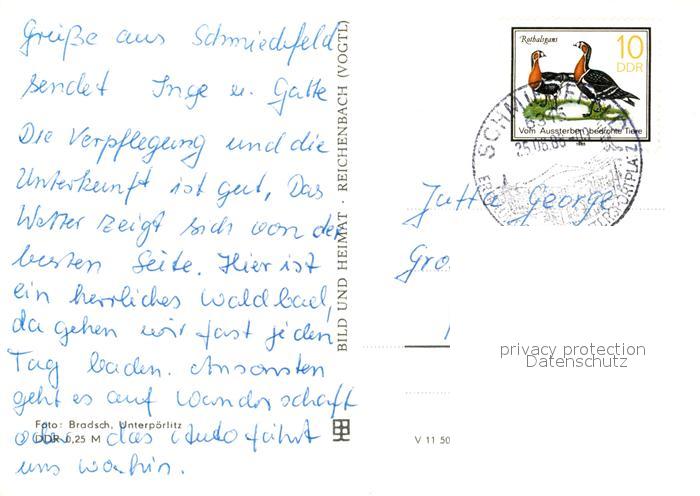 Grüße aus Schmiedefeld
sendet Inge u. Gatte
Die Verpflegung und die
Unterkunft ist gut, Das
Wetter zeigt sich von der
besten Seite. Hier ist
ein herrliches Waldbad,
da gehen wir fast jeden
Tag baden. Ansonsten
geht es auf Wanderschaft
oder das Auto fährt
uns wohin.
Foto: Bradsch, Unterpörlitz
DDR 0,25 M
BILD UND HEIMAT · REICHENBACH (VOGTL)
V 11 50
Rothalsgans
10
DDR
Vom Aussterben bedrohte Tiere
Jutta George
Gro
privacy protection
Datenschutz